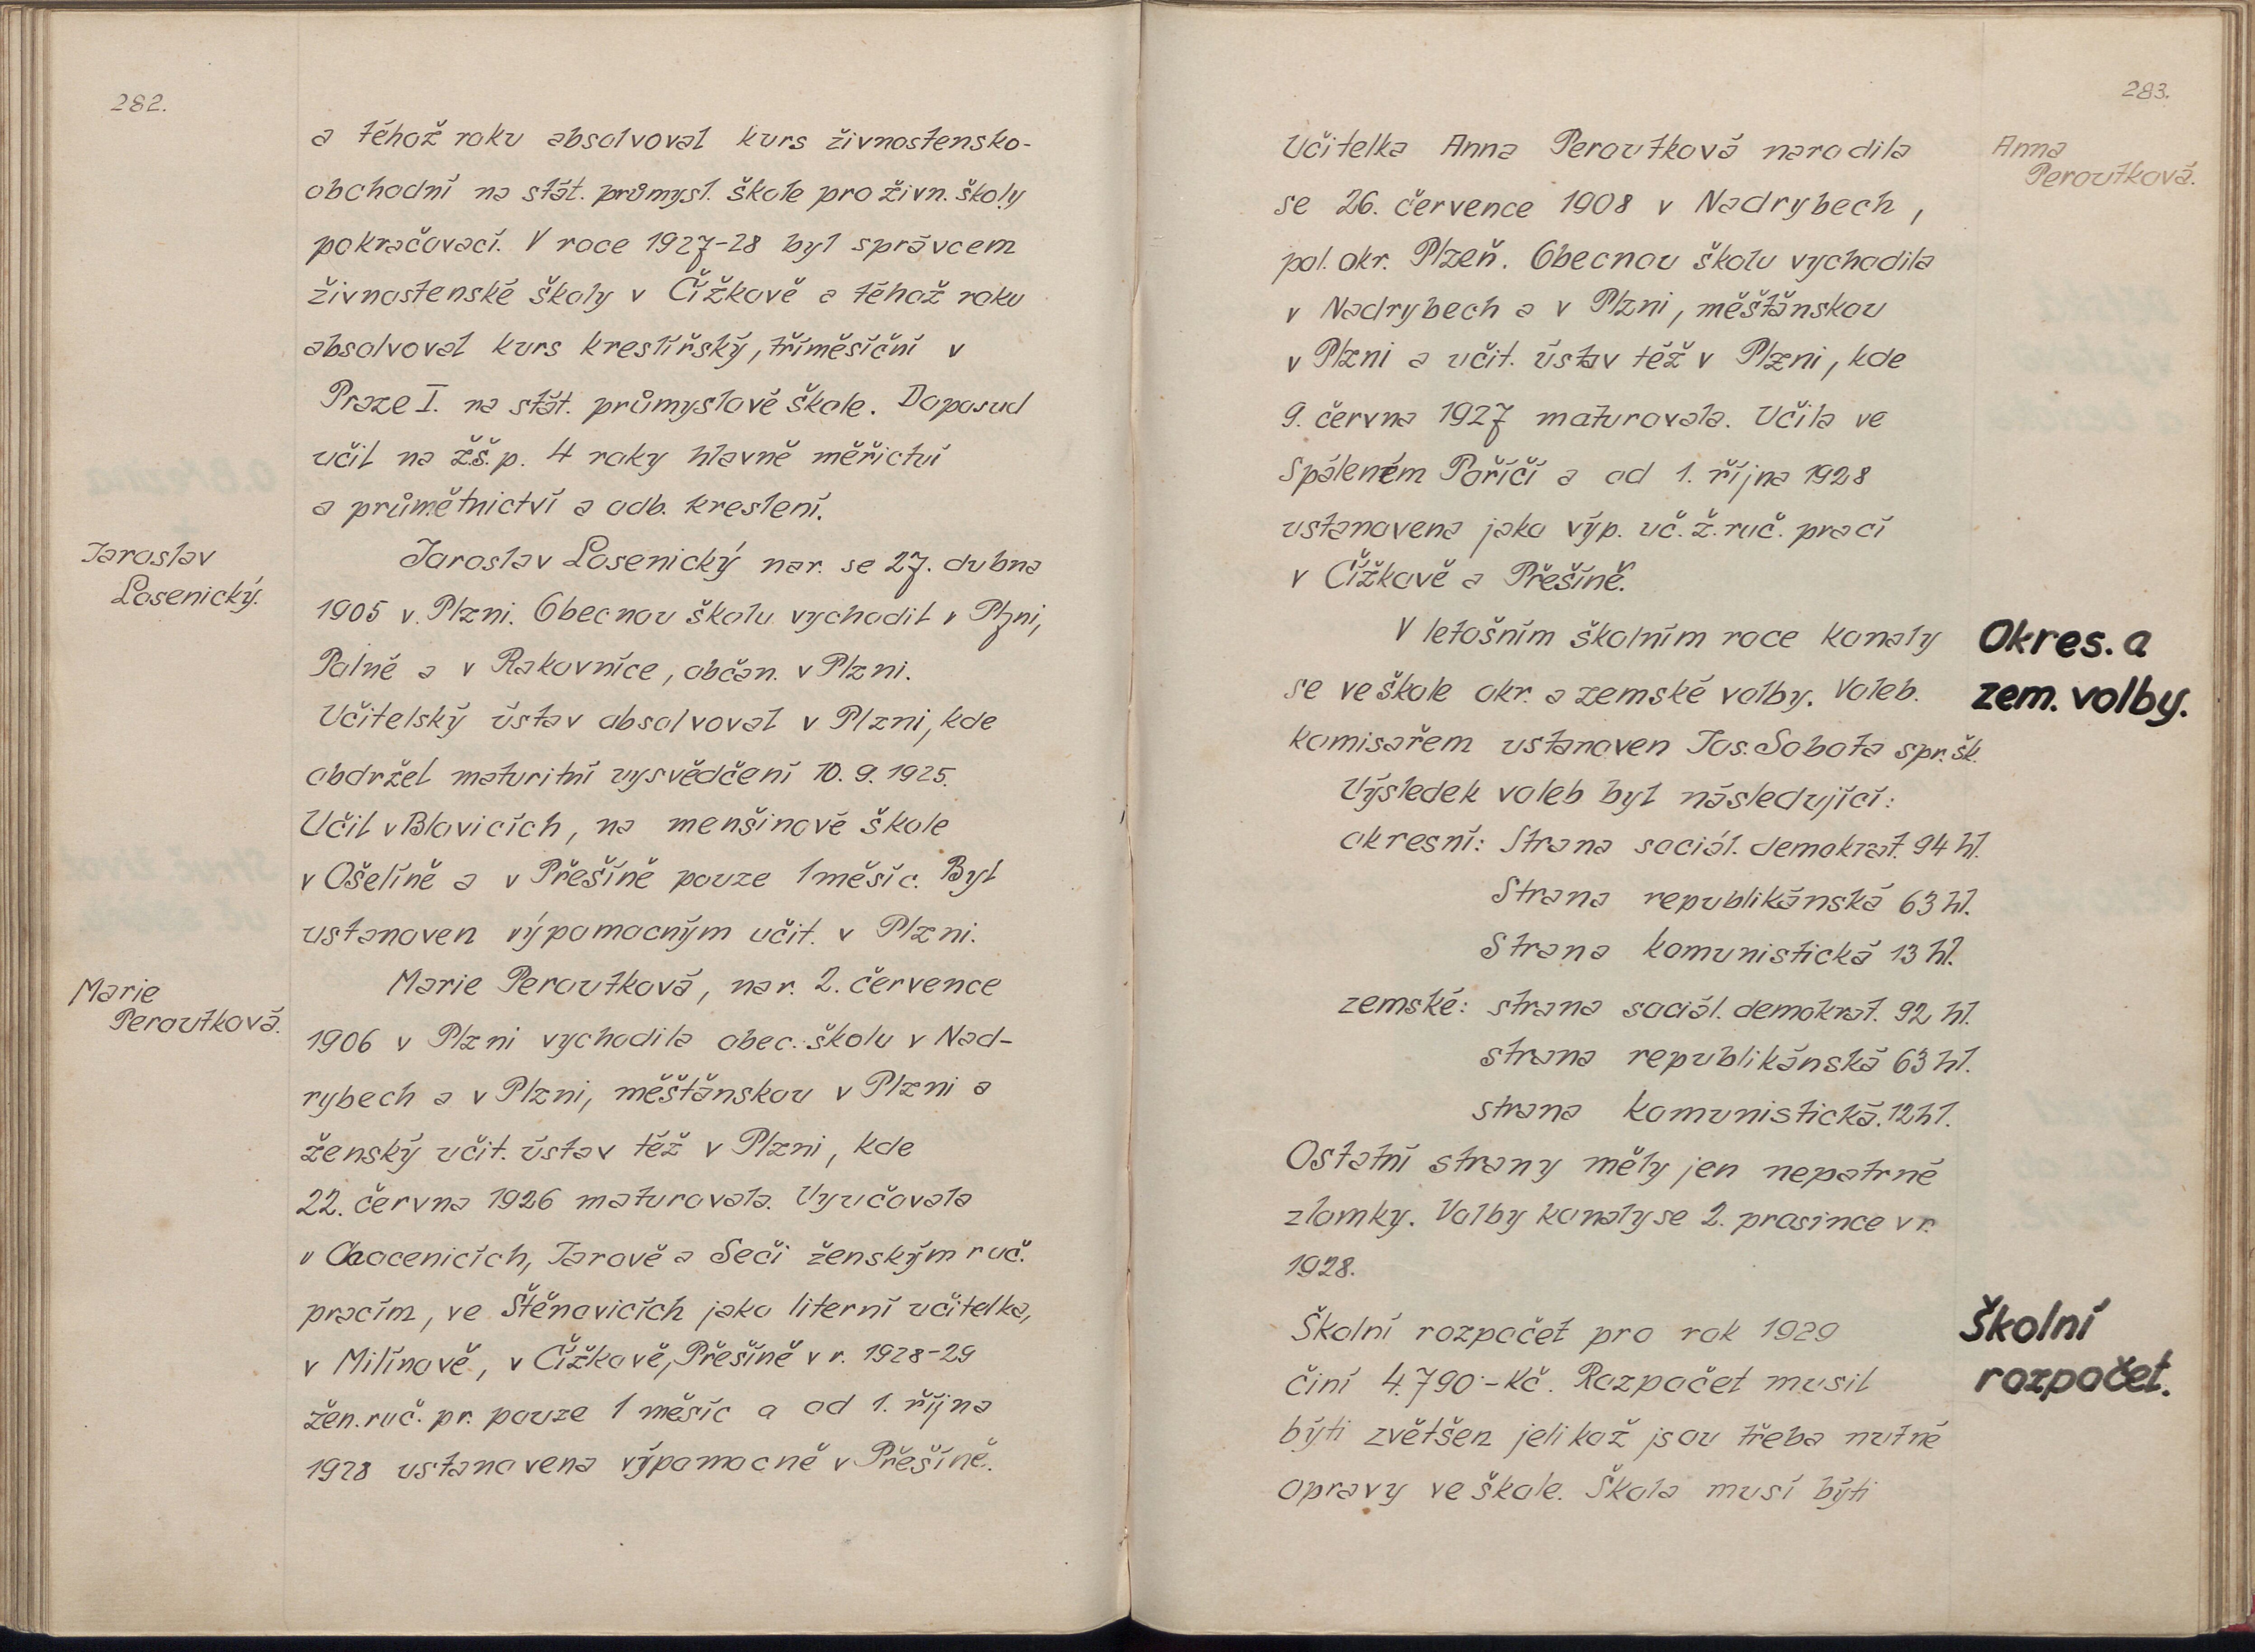 282.
a téhož roku absolvoval kurs živnostensko-
obchodní na stát. průmysl. škole pro živn. školy
pokračovací. V roce 1927-28 byl správcem
živnostenské školy v Čížkově a téhož roku
absolvoval kurs kreslířský, tříměsíční v
Praze I. na stát. průmyslové škole. Doposud
učil na ž.š.p. 4 roky hlavně měřictví
a průmětnictví a odb. kreslení.
Jaroslav
Losenický.
Jaroslav Losenický nar. se 27. dubna
1905 v Plzni. Obecnou školu vychodil v Plzni,
Polně a v Rakovníce, občan. v Plzni.
Učitelský ústav absolvoval v Plzni, kde
obdržel maturitní vysvědčení 10. 9. 1925.
Učil v Blovicích, na menšinové škole
v Ošelíně a v Přešíně pouze 1 měsíc. Byl
ustanoven výpomocným učit. v Plzni.
Marie
Peroutková.
Marie Peroutková, nar. 2. července
1906 v Plzni vychodila obec. školu v Nad-
rybech a v Plzni, měšťanskou v Plzni a
ženský učit. ústav též v Plzni, kde
22. června 1926 maturovala. Vyučovala
v Chocenicích, Jarově a Seči ženským ruč.
pracím, ve Štěnovicích jako literní učitelka,
v Milínově, v Čížkově, Přešíně v r. 1928-29
žen. ruč. pr. pouze 1 měsíc a od 1. října
1928 ustanovena výpomocně v Přešíně.
283.
Anna
Peroutková.
Učitelka Anna Peroutková narodila
se 26. července 1908 v Nadrybech,
pol. okr. Plzeň. Obecnou školu vychodila
v Nadrybech a v Plzni, měšťanskou
v Plzni a učit. ústav též v Plzni, kde
9. června 1927 maturovala. Učila ve
Spáleném Poříčí a od 1. října 1928
ustanovena jako výp. uč. ž. ruč. prací
v Čížkově a Přešíně.
Okres. a
zem. volby.
V letošním školním roce konaly
se ve škole okr. a zemské volby. Voleb.
komisařem ustanoven Jos. Sobota spr. šk.
Výsledek voleb byl následující:
okresní: Strana sociál. demokrat. 94 hl.
Strana republikánská 63 hl.
Strana komunistická 13 hl.
zemské: strana sociál. demokrat. 92 hl.
strana republikánská 63 hl.
strana komunistická. 12 hl.
Ostatní strany měly jen nepatrné
zlomky. Volby konaly se 2. prosince v r.
1928.
Školní
rozpočet.
Školní rozpočet pro rok 1929
činí 4.790·-Kč. Rozpočet musil
býti zvětšen jelikož jsou třeba nutné
opravy ve škole. Škola musí býti